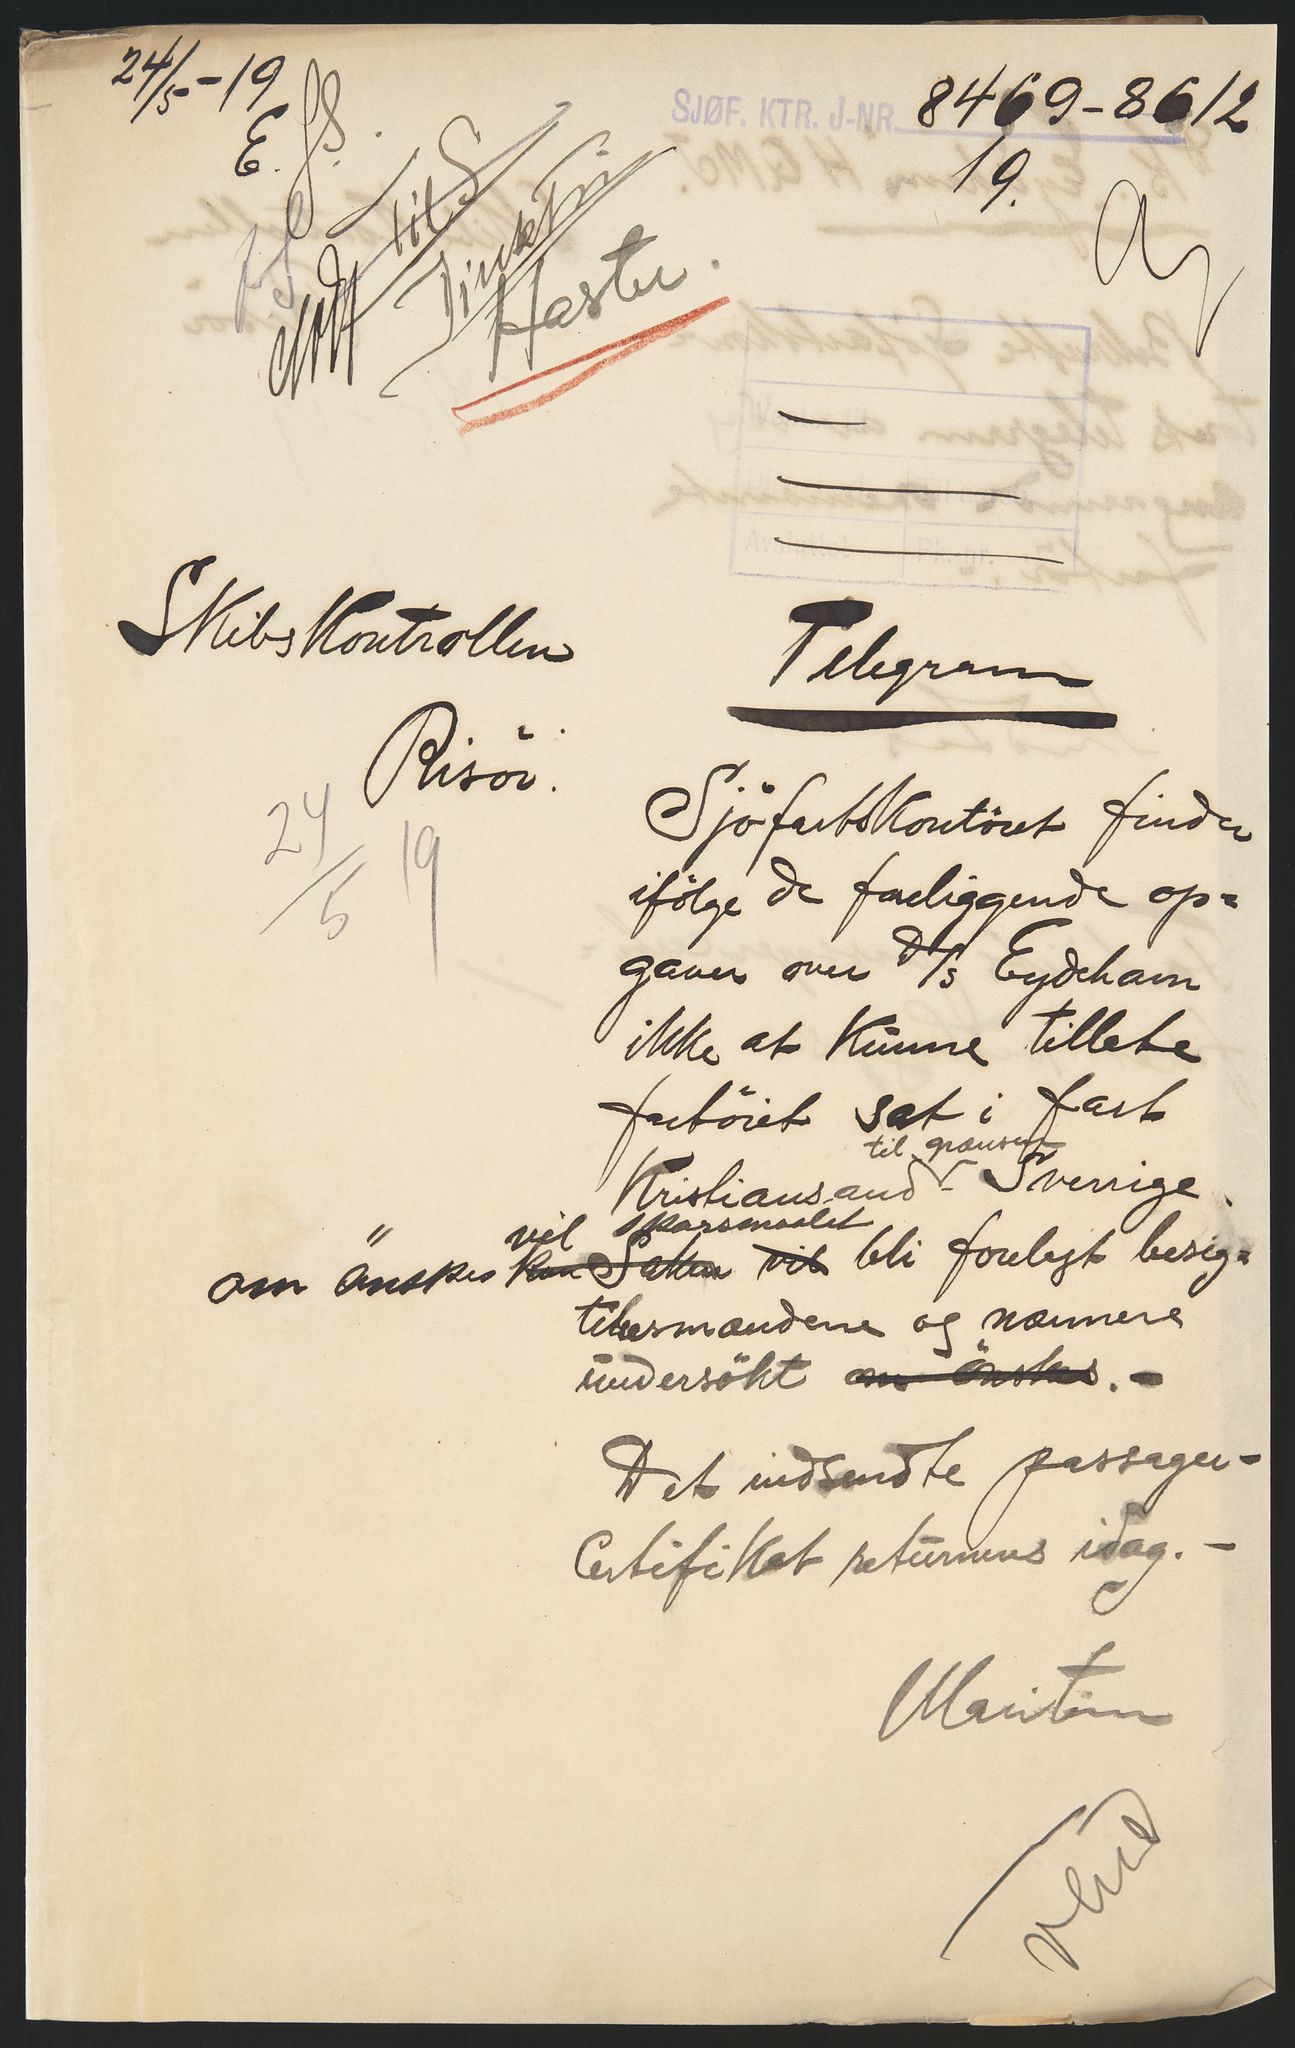 24/5-19
E.
SJØF. KTR. J-NR. 8469-8612
19.
Haster.
Skibskontrollen
Risör.
24/5 19
Telegram
Sjöfartskontöret finder
ifölge de foreliggende op=
gaver over D/S Eydehavn
ikke at kunne tillate
fartöiet sat i fart
til grænsen
Kristiansand - Sverrige.
vil spørsmaalet
om önskes kan Saken vil bli forelagt besig=
telsesmændene og nærmere
undersökt om önskes.-
Det indsendte passager-
Certifikat returneres idag.-
Maritim